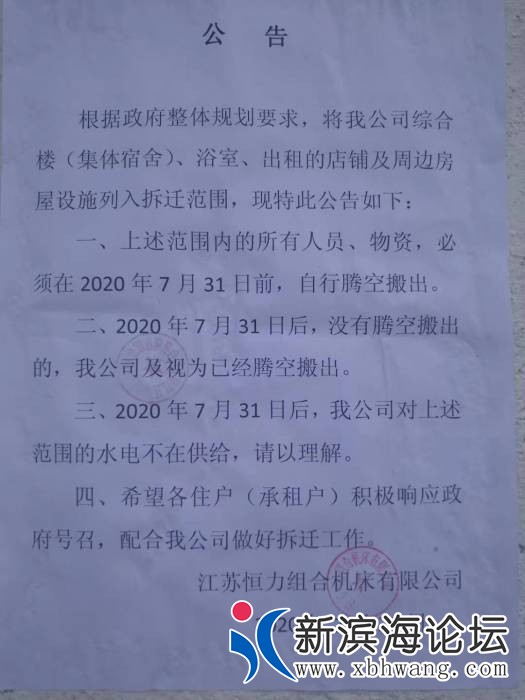 公 告
根据政府整体规划要求，将我公司综合
楼（集体宿舍）、浴室、出租的店铺及周边房
屋设施列入拆迁范围，现特此公告如下：
一、上述范围内的所有人员、物资，必
须在 2020 年 7 月 31 日前，自行腾空搬出。
二、2020 年 7 月 31 日后，没有腾空搬出
的，我公司及视为已经腾空搬出。
三、2020 年 7 月 31 日后，我公司对上述
范围的水电不在供给，请以理解。
四、希望各住户（承租户）积极响应政
府号召，配合我公司做好拆迁工作。
江苏恒力组合机床有限公司
2020
新滨海论坛
www.xbhwang.com